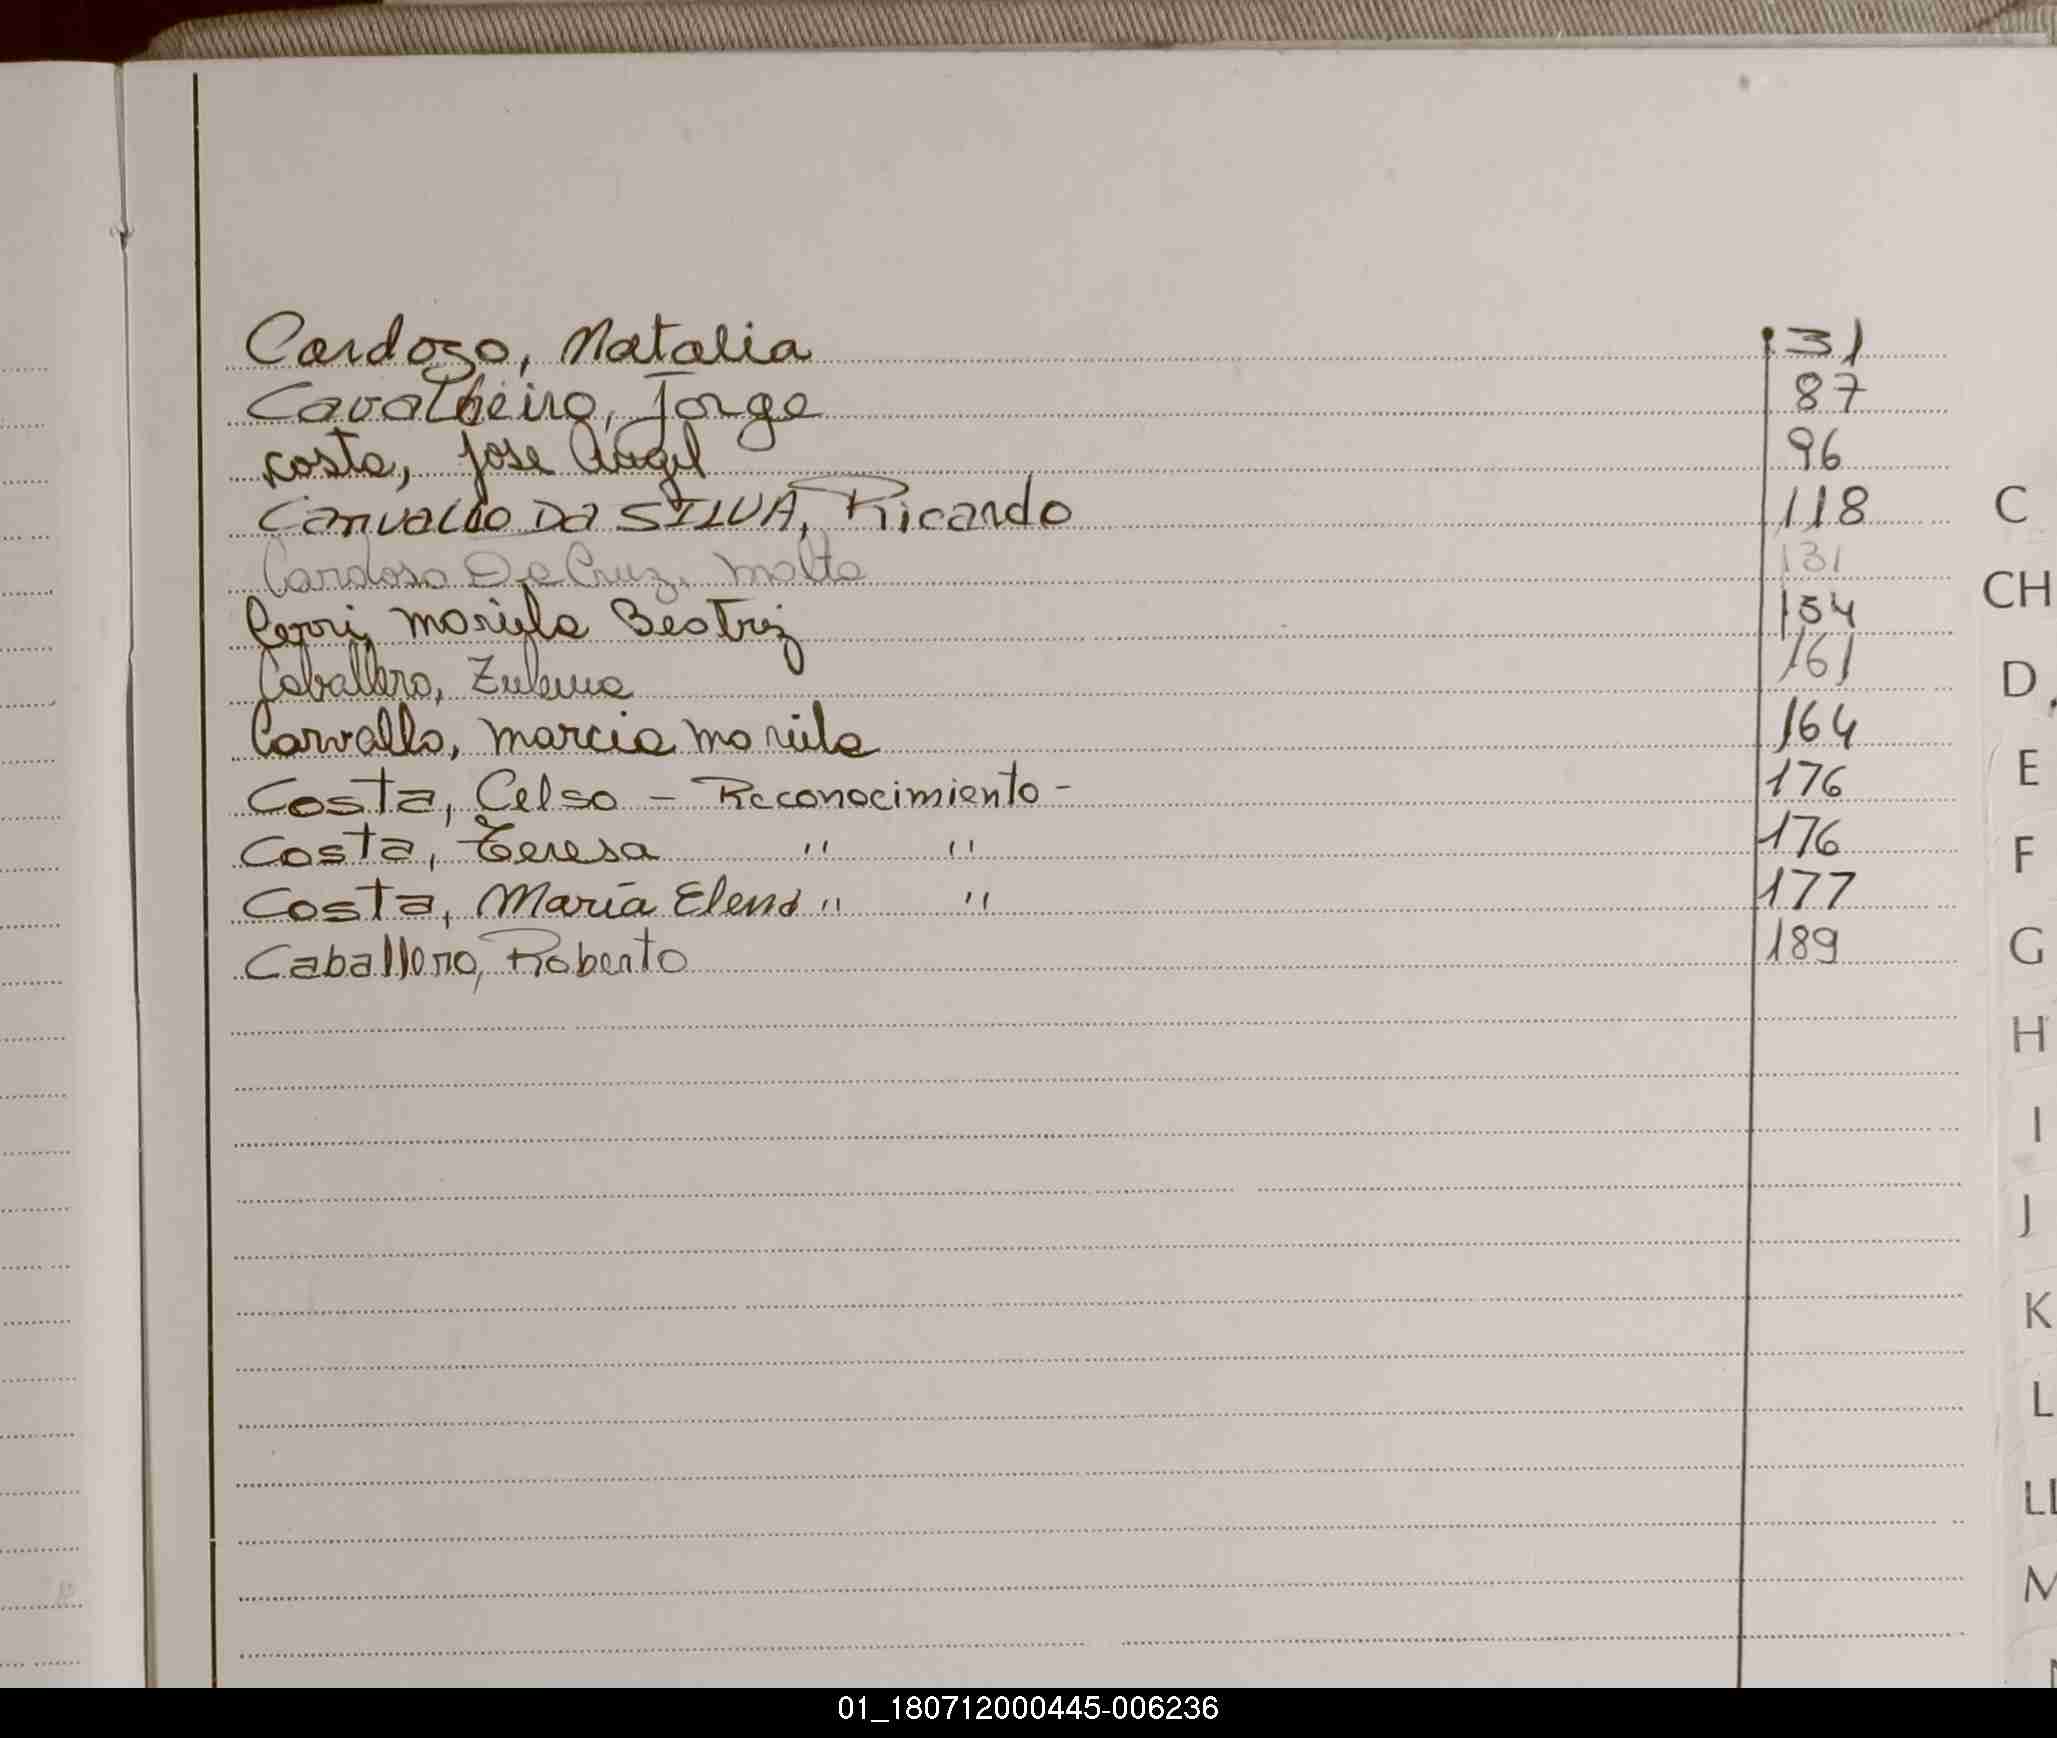 Cardozo, Natalia 31
Cavalheiro, Jorge 87
Costa, Jose Angel 96
Carvalho Da SILVA, Ricardo 118
Cardoso Da Cruz, 131
Cerri, Mariela Beatriz 154
Caballero, Zulema 161
Carvallo, Marcia Mariela 164
Costa, Celso - Reconocimiento - 176
Costa, Teresa " " 176
Costa, María Elena " " 177
Caballero, Roberto 189
C
CH
D
E
F
G
H
I
J
K
L
LL
M
01_180712000445-006236